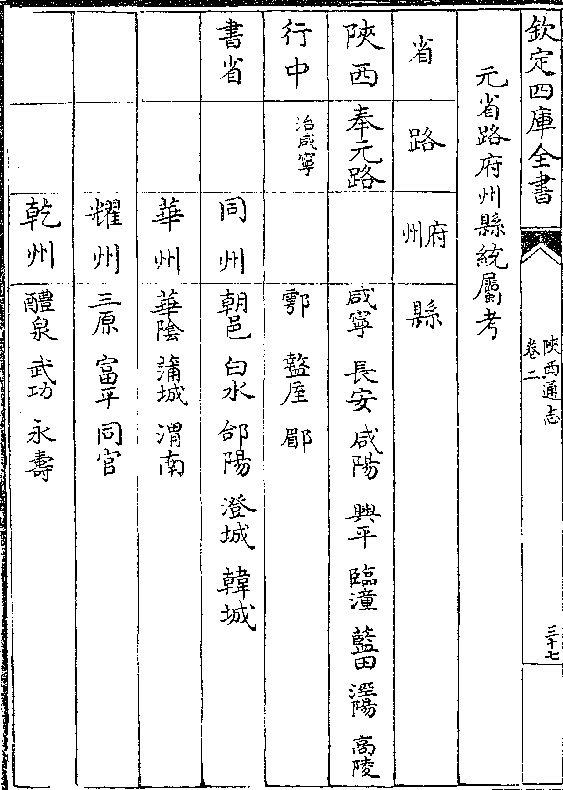 欽定四庫全書
陝西通志
卷二
三十七
元省路府州縣統屬考
省 路 府州 縣
陝西 奉元路 咸寧 長安 咸陽 興平 臨潼 藍田 涇陽 高陵
行中 治咸寧 鄠 盩厔 郿
書省 同州 朝邑 白水 郃陽 澄城 韓城
華州 華陰 蒲城 渭南
耀州 三原 富平 同官
乾州 醴泉 武功 永壽